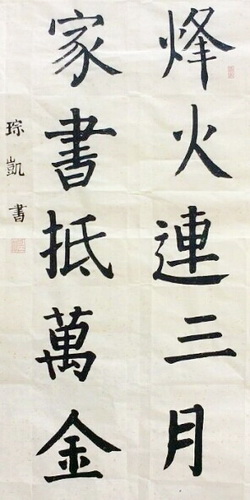 烽火連三月
家書抵萬金
琮凱書